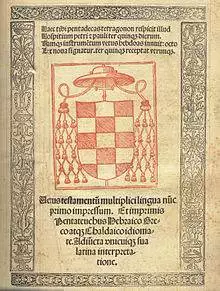 Haec tibi pentadecas tetragonon respicit illud
Hospitium petri & pauli ter quinq; dierum.
Namq; instrumētum vetus hebdoas innuit: octo
Lex noua signatur. ter quinq; receptat utrumq;.
Vetus testamentū multiplici lingua nūc
primo impressum. Et imprimis
Pentateuchus Hebraico Gre
co atq; Chaldaico idioma-
te. Adiūcta unicuiq; sua
latina interpreta-
tione.